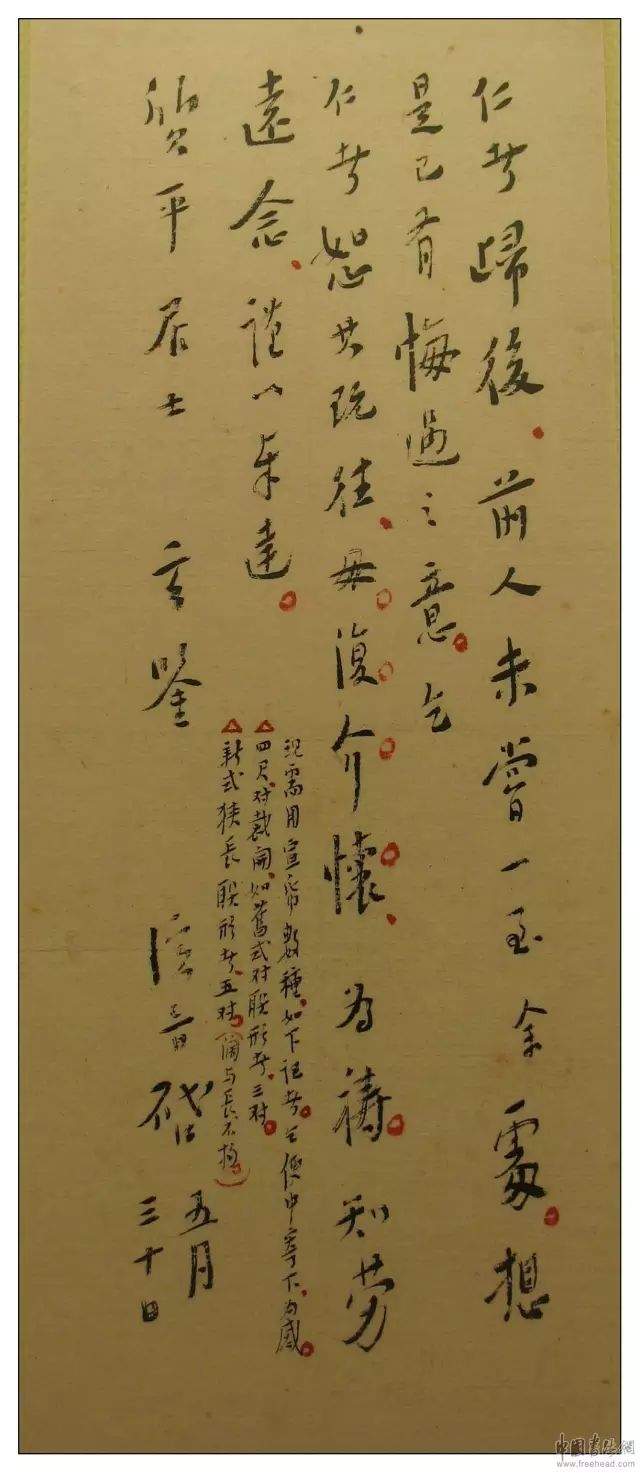 仁者歸後、前人未嘗一至余處。想
是已有悔過之意。乞
仁者恕其既往、毋復介懷、為禱。知勞
遠念、謹以奉達。
質平居士玄鑒
演音啟
五月
三十日
現需用宣帋數種、如下記者。乞便中寄下、為感。
△四尺对裁開、如舊式对聯形者、三对。
△新式狹長聯形者、五对。（闊与長不拘）
中國書法網
www.freehead.com